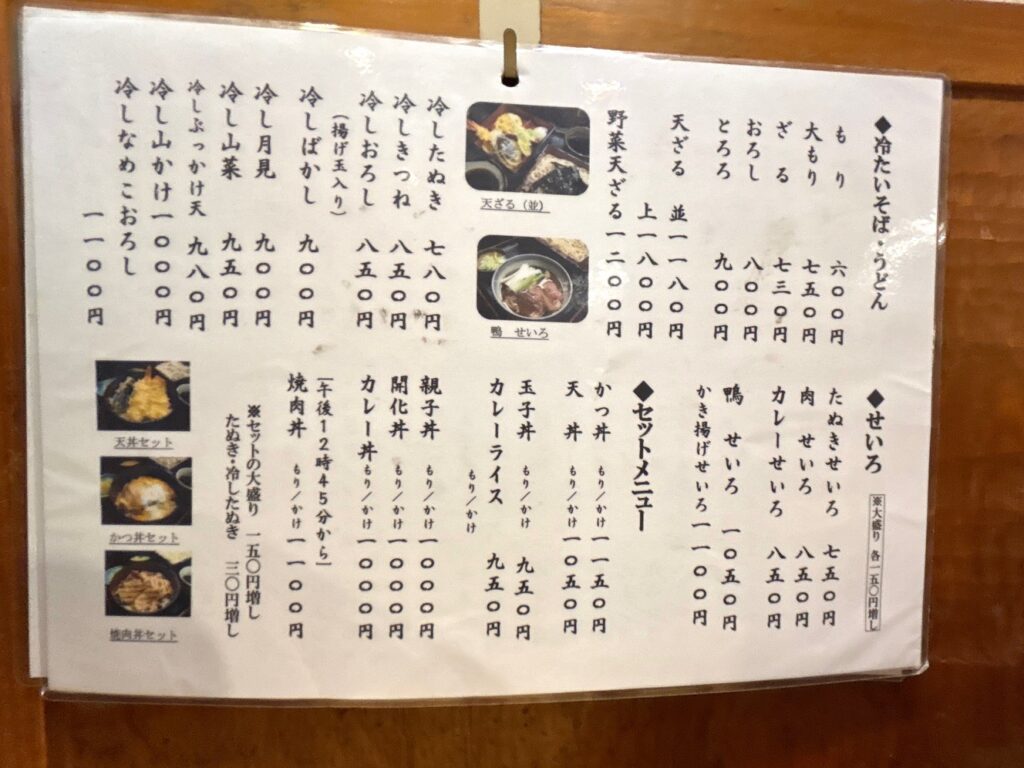 ◆冷たいそば・うどん
もり 六〇〇円
大もり 七五〇円
ざる 七三〇円
おろし 八〇〇円
とろろ 九〇〇円
天ざる 並一一八〇円
上一八〇〇円
野菜天ざる一二〇〇円
天ざる（並）
鴨 せいろ
冷したぬき 七八〇円
冷しきつね 八五〇円
冷しおろし 八五〇円
（揚げ玉入り）
冷しばかし 九〇〇円
冷し月見 九〇〇円
冷し山菜 九五〇円
冷しぶっかけ天 九八〇円
冷し山かけ一〇〇〇円
冷しなめこおろし
一一〇〇円
◆せいろ
※大盛り 各一五〇円増し
たぬきせいろ 七五〇円
肉 せいろ 八五〇円
カレーせいろ 八五〇円
鴨 せいろ 一〇五〇円
かき揚げせいろ一一〇〇円
◆セットメニュー
かつ丼 もり／かけ 一一五〇円
天丼 もり／かけ 一〇五〇円
玉子丼 もり／かけ 九五〇円
カレーライス 九五〇円
もり／かけ
親子丼 もり／かけ 一〇〇〇円
開化丼 もり／かけ 一〇〇〇円
カレー丼 もり／かけ 一〇〇〇円
［午後12時45分から］
焼肉丼 もり／かけ 一一〇〇円
※セットの大盛り 一五〇円増し
たぬき・冷したぬき 三〇円増し
天丼セット
かつ丼セット
焼肉丼セット